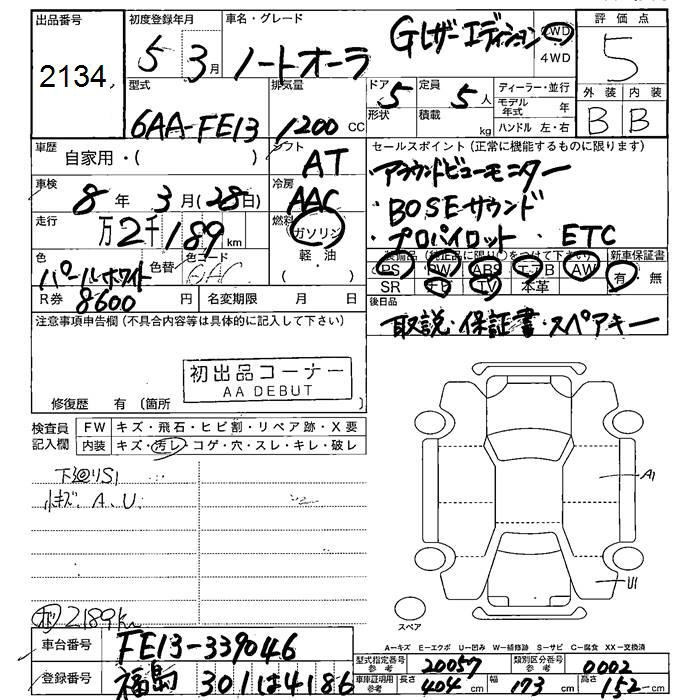 出品番号 初度登録年月 車名・グレード 評価点
2134 5年3月 ノートオーラ Gレザーエディション 2WD 4WD 5
型式 排気量 ドア 定員 ディーラー・並行 外装 内装
6AA-FE13 1200 CC 5 5人 モデル年式 年 B B
形状 積載 kg ハンドル 左・右
車歴 自家用・( ) シフト AT セールスポイント(正常に機能するものに限ります)
車検 8年 3月(28日) 冷房 AAC ・アラウンドビューモニター
・BOSEサウンド
走行 万2千189km 燃料 ガソリン 軽・油 ・プロパイロット・ETC
色 パールホワイト 色替 色コード 装備品(純正品に限り○をつけて下さい) 新車保証書
PS PW ABS エアB AW 有 無
SR ナビ TV 本革
R券 8600円 名変期限 月 日 後日品
取説・保証書・スペアキー
注意事項申告欄(不具合内容等は具体的に記入して下さい)
初出品コーナー
AA DEBUT
修復歴 有 〔箇所
検査員記入欄 FW キズ・飛石・ヒビ割・リペア跡・X要
内装 キズ・汚レ・コゲ・穴・スレ・キレ・破レ
下廻りS1
小キズ.A.U. A1
U1
スペア
2189km
A―キズ E―エクボ U―凹み W―補修跡 S―サビ C―腐食 XX―交換済
車台番号 FE13-339046 型式指定番号参考 20057 類別区分番号参考 0002
登録番号 福島301は4186 車庫証明用参考 長さ 404cm 幅 173cm 高さ 152cm